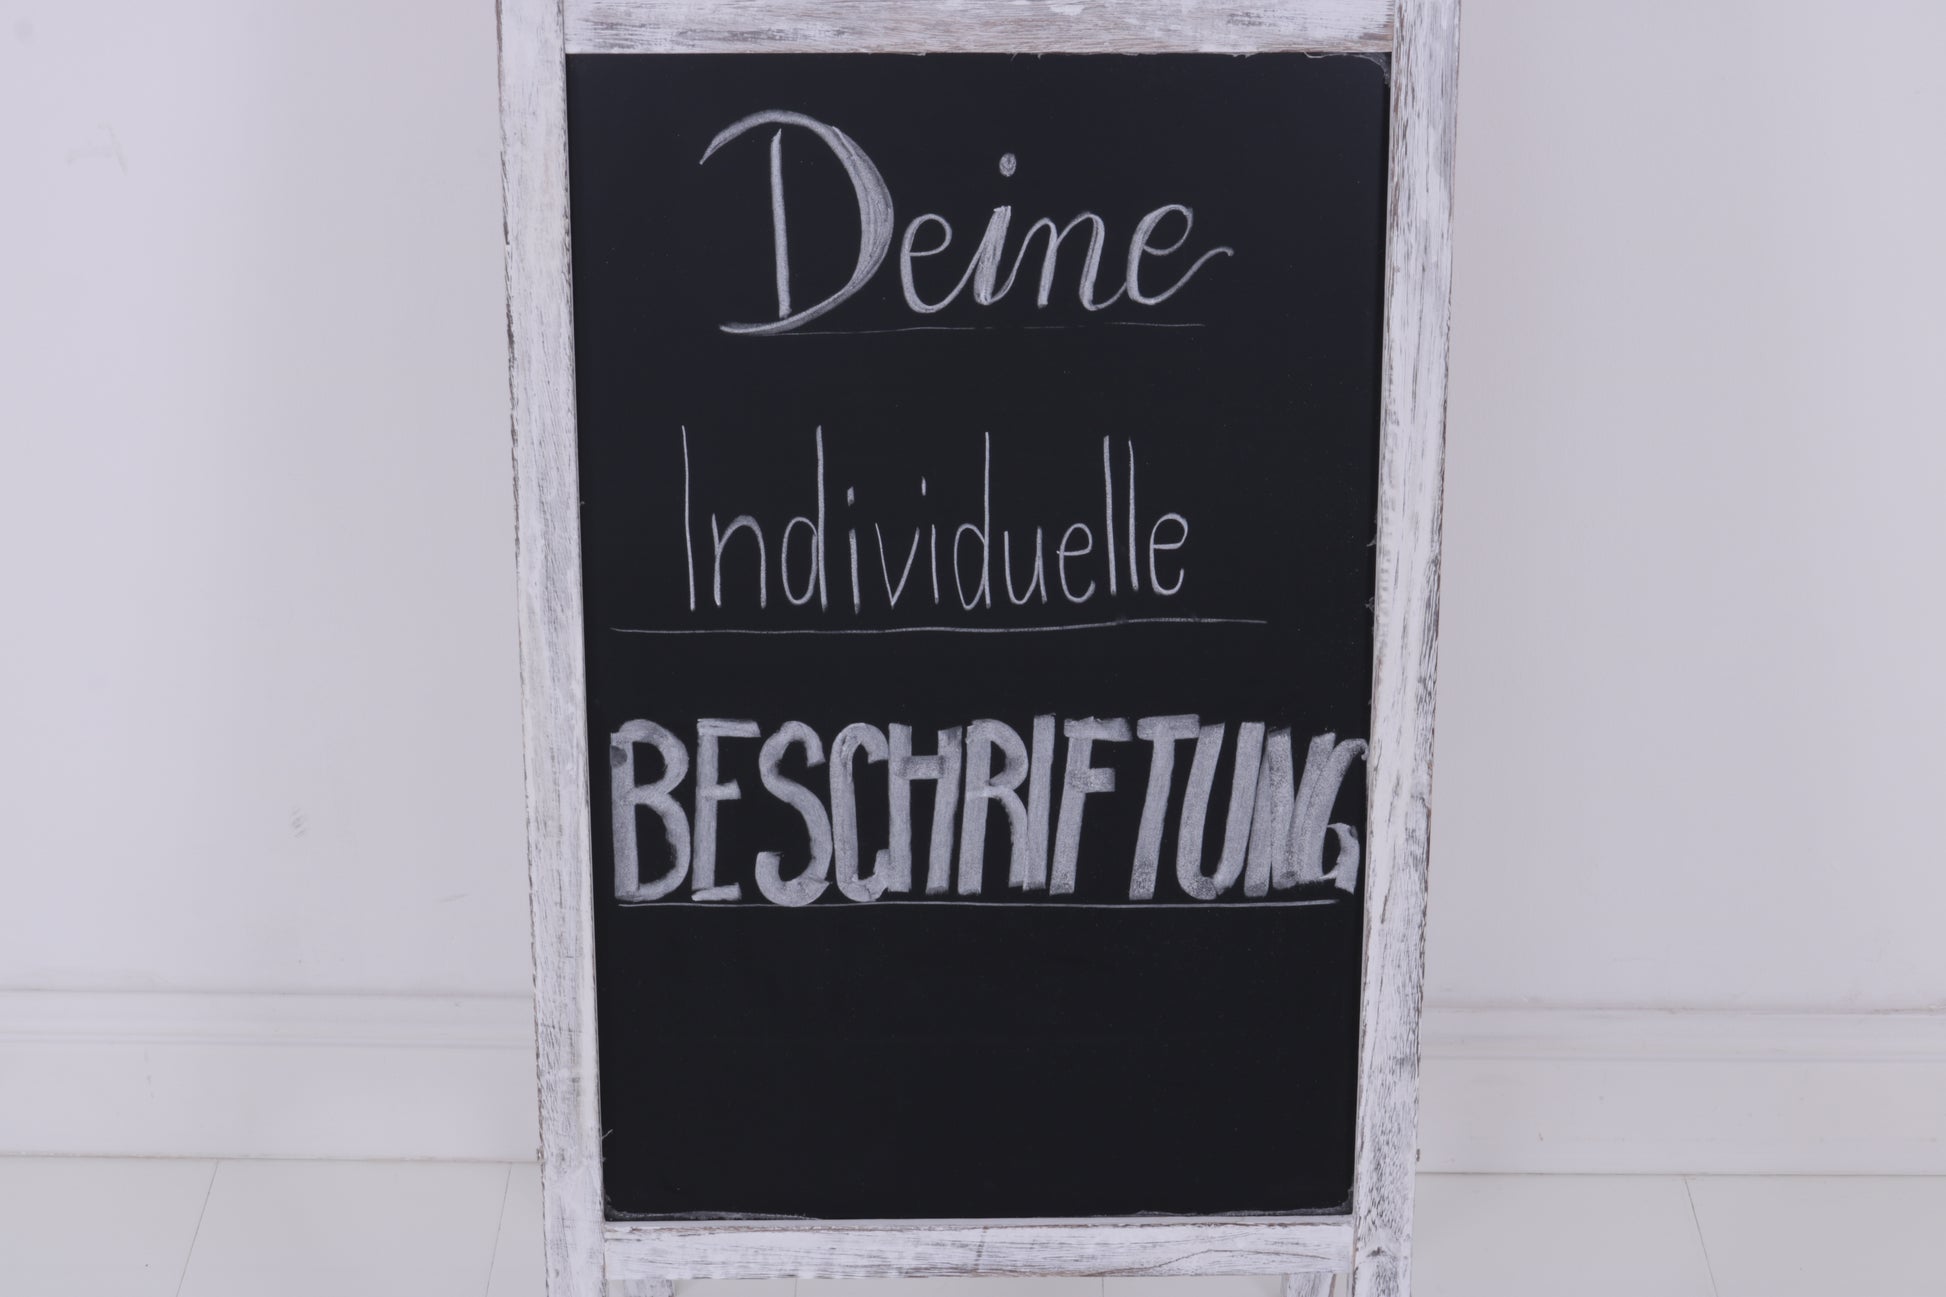 Deine
Individuelle
BESCHRIFTUNG